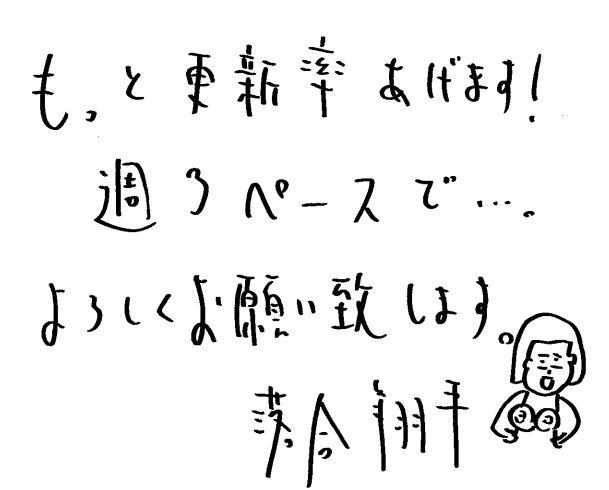 もっと更新率あげます!
週3ペースで…。
よろしくお願い致します。
落合翔平